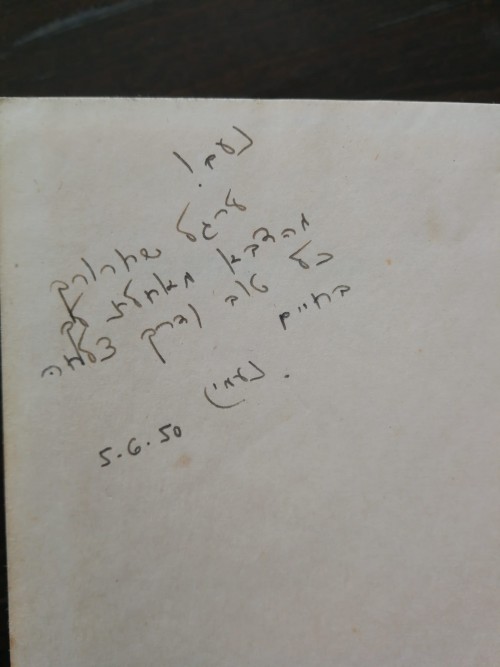 נעם!
לרגל שחרורך
מהצבא מאחלת לך
כל טוב ודרך צלחה
בחיים
נעמי.
5.6.50